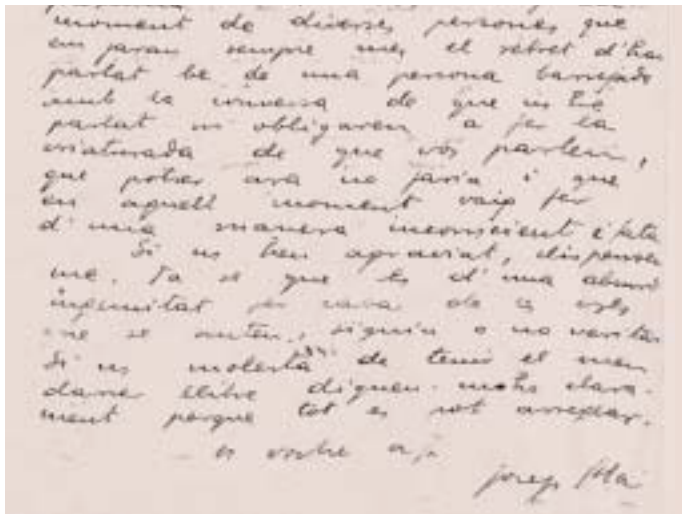 moment de diverses persones que
em faran sempre més el retret d'ha
parlat bé de una persona barrejada
amb la conversa de que us he
parlat m obligaren a fer la
criaturada de que vós parleu,
que potser ara no faria i que
en aquell moment vaig fer
d'una manera inconscient i
Si us heu agraviat, dispenseu
me. Ja se que és d'una absurd
ingenuitat de
que se senten, siguin o no veritat
Si us molesta de tenir el meu
darrer llibre digueu-m'ho clara-
ment perque tot es pot arreglar.
es vostre a.
Josep Pla